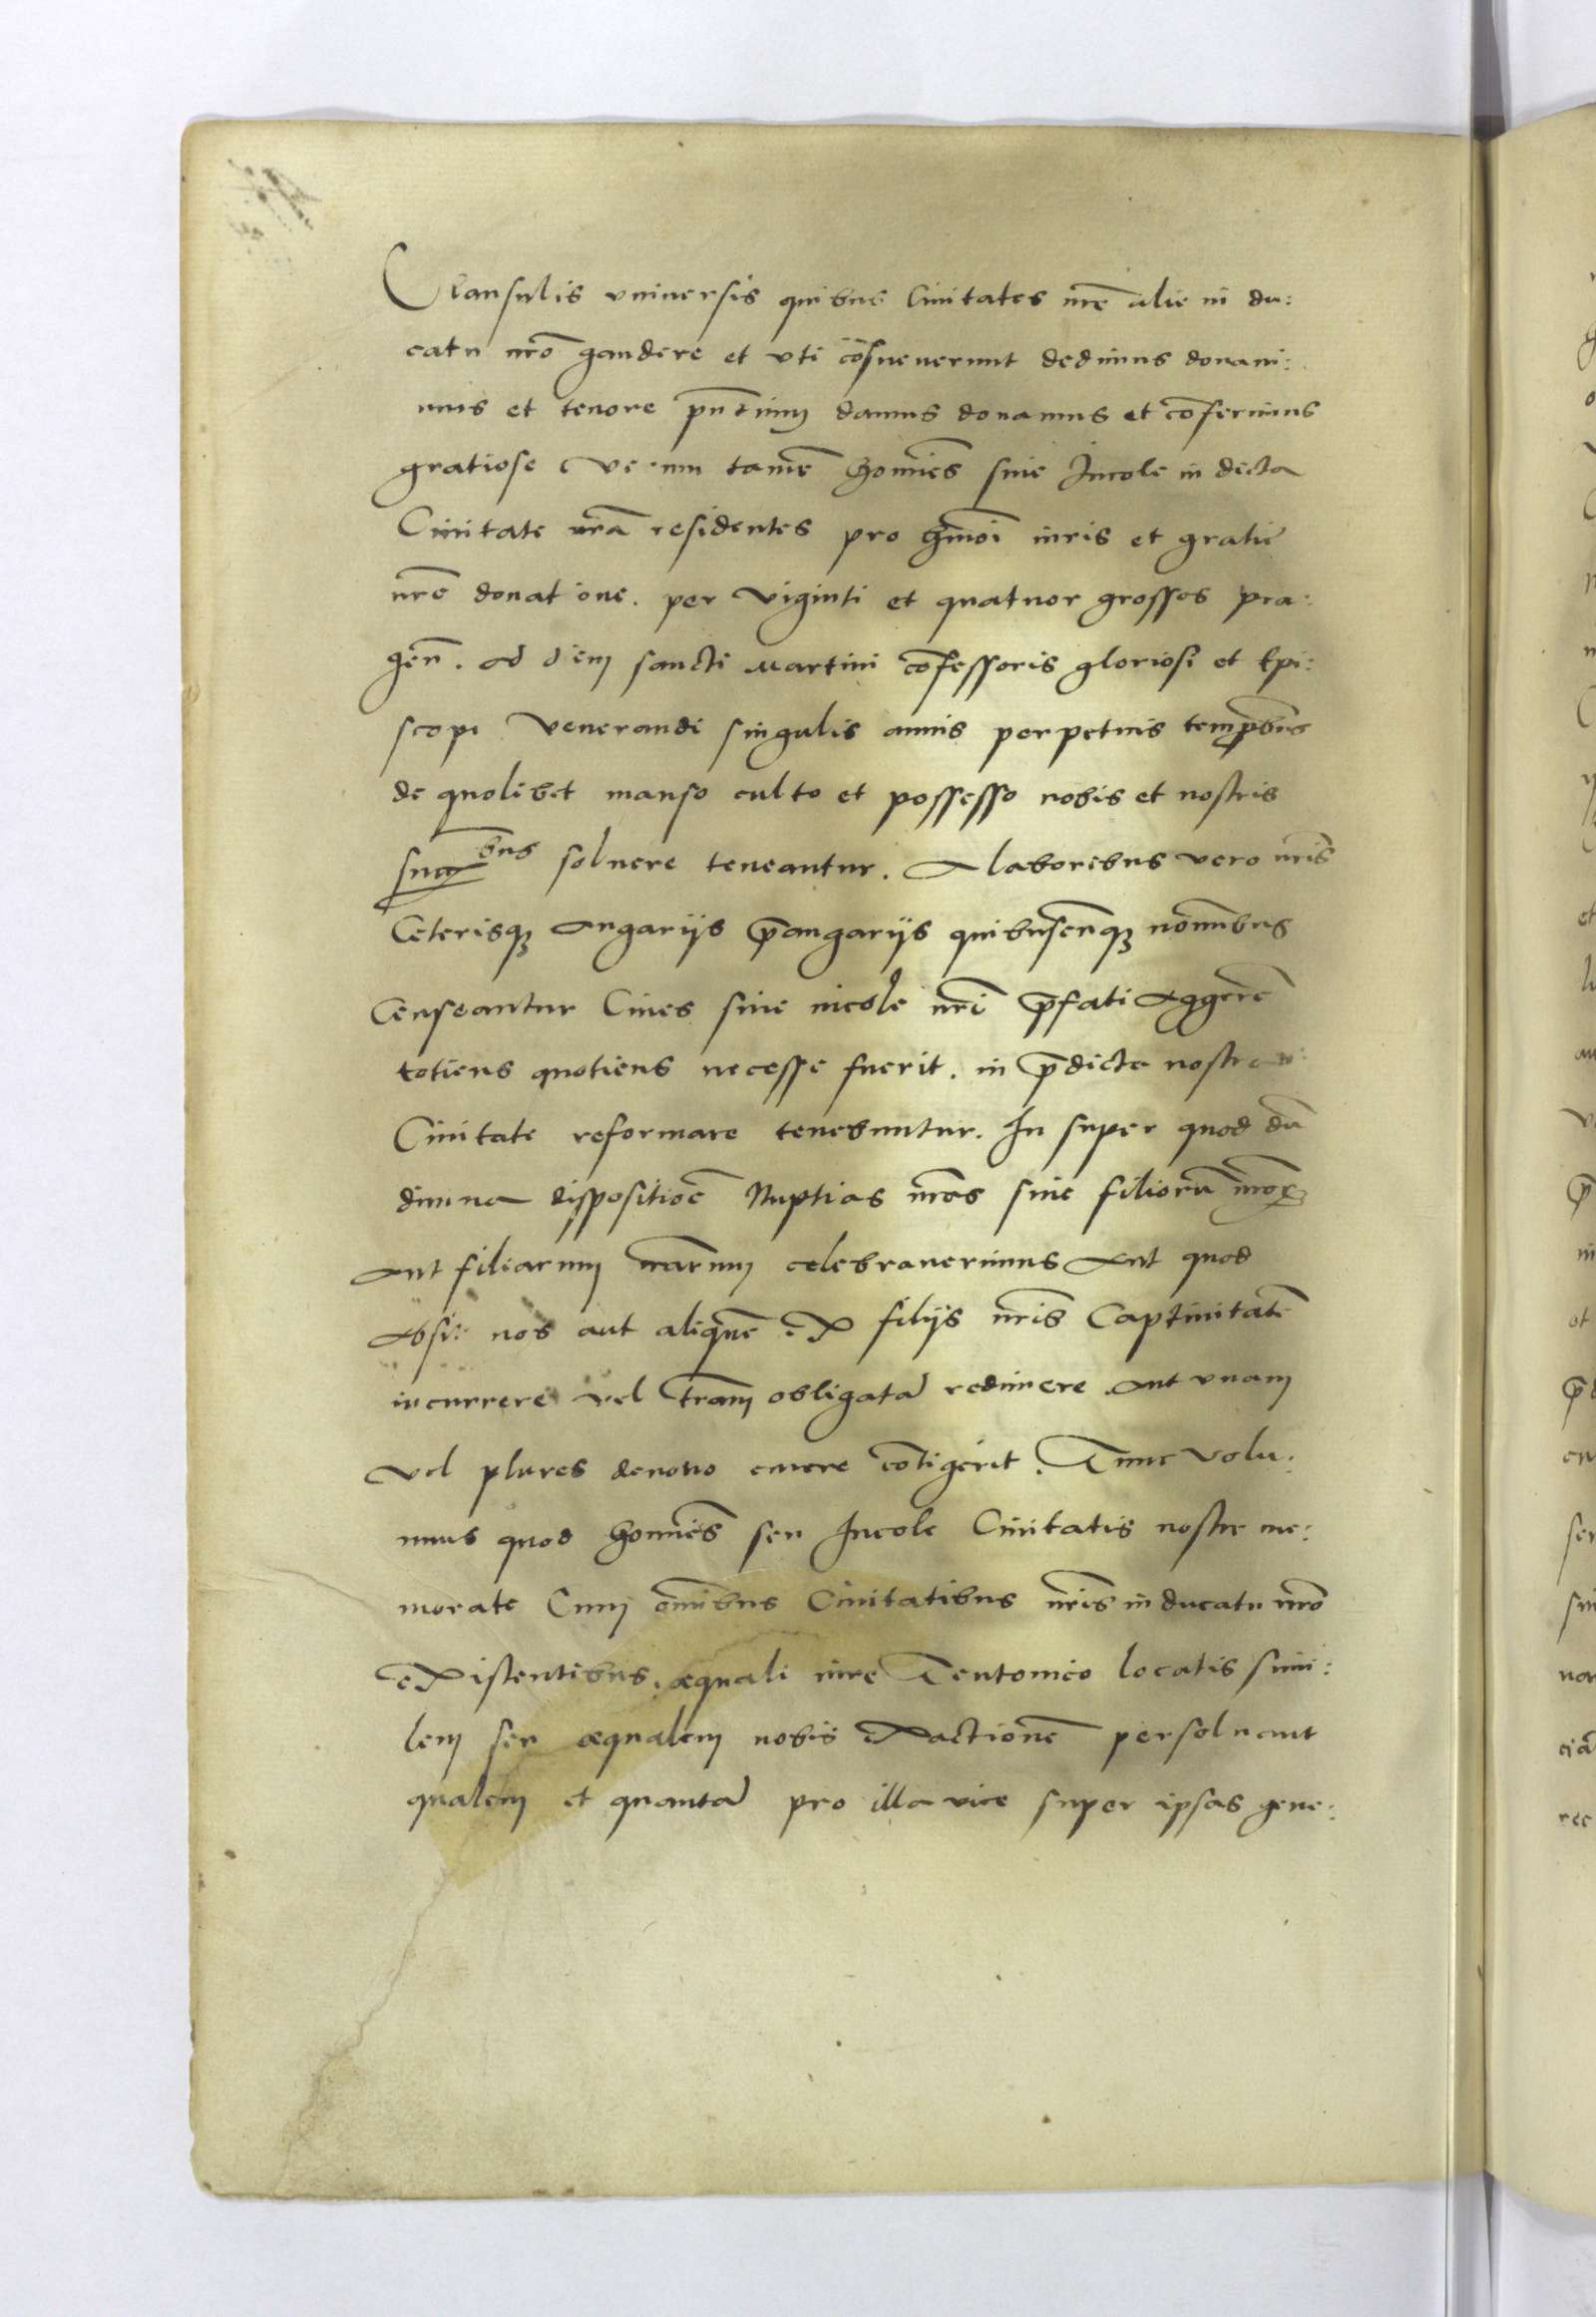 Clausulis vniuersis quibus Ciuitates nr̄e alie in du:
catu nr̄o gaudere et vti cōsueuerunt dedimus donaui:
mus et tenore pn̄tium damus donamus et cōferimus
gratiose Verum tamē homīes siue Incole in dicta
Ciuitate nr̄a residentes pro hmōi iuris et gratie
nr̄e donatione. per viginti et quatuor grossos pra:
gēn. Ad diem sancti Martini cōfessoris gloriosi et Epi:
scopi Venerandi singulis annis perpetuis temp̄ibus
de quolibet manso culto et possesso nobis et nostris
succ bus soluere teneantur. A laboribus vero nr̄is
Ceterisqȝ Angarijs p̄angarijs quibuscunqȝ nomībus
Censeantur Ciues siue incole nr̄i p̄fati Aggerē
totiens quotiens necesse fuerit. in p̄dicta nostra
Ciuitate reformare tenebuntur. In super quod dū
diuina dispositiōe Nuptias nr̄as siue filiorū nr̄orȝ
Aut filiarum nr̄arum celebrauerimus Aut quod
Absit nos aut aliquē ex filijs nr̄is Captiuitatē
incurrere vel tr̄am obligatā redimere Aut vnam
vel plures denouo emere cōtigerit. Tunc volu:
mus quod homīes seu Incole Ciuitatis nostre me:
morate Cum om̄ibus Ciuitatibus nr̄is in ducatu nr̄o
existentibus. æquali iure Teutonico locatis simi:
lem seu æqualem nobis exactionē persoluant
qualem et quantā pro illa vice super ipsas gene: